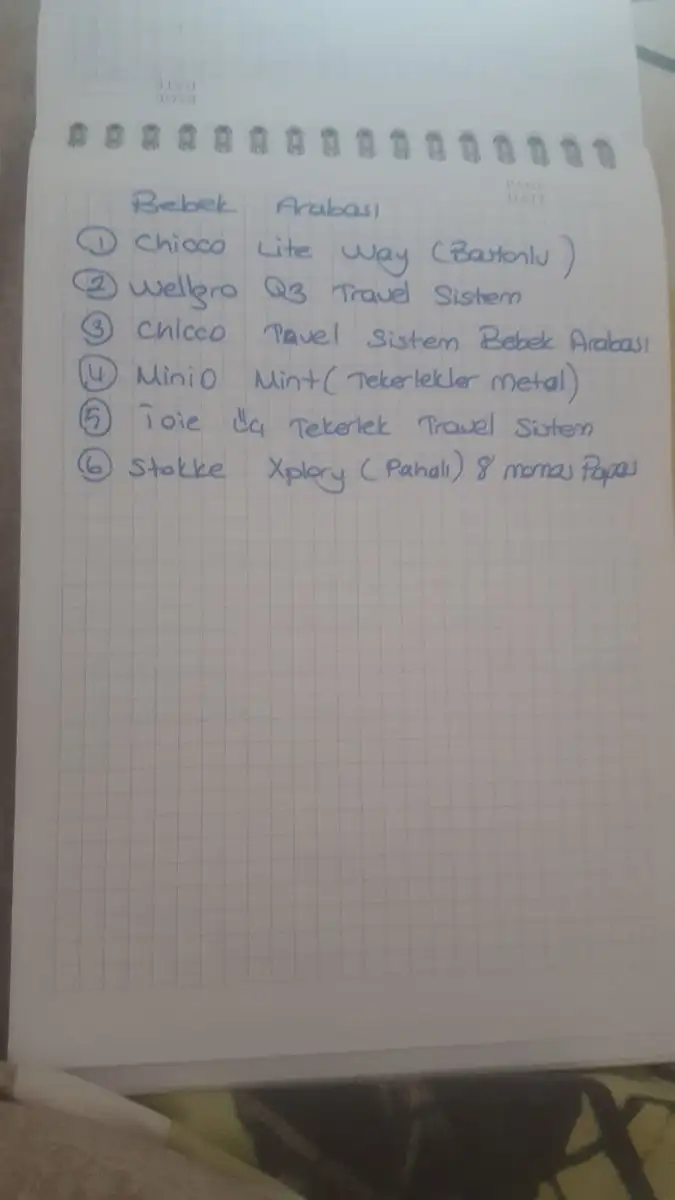 Bebek Arabası
① Chicco Lite Way (Bastonlu)
② Wellgro Q3 Travel Sistem
③ Chicco Travel Sistem Bebek Arabası
④ Minio Mint (Tekerlekler metal)
⑤ Joie Üç Tekerlek Travel Sistem
⑥ Stokke Xplory (Pahalı) & mamas Papas